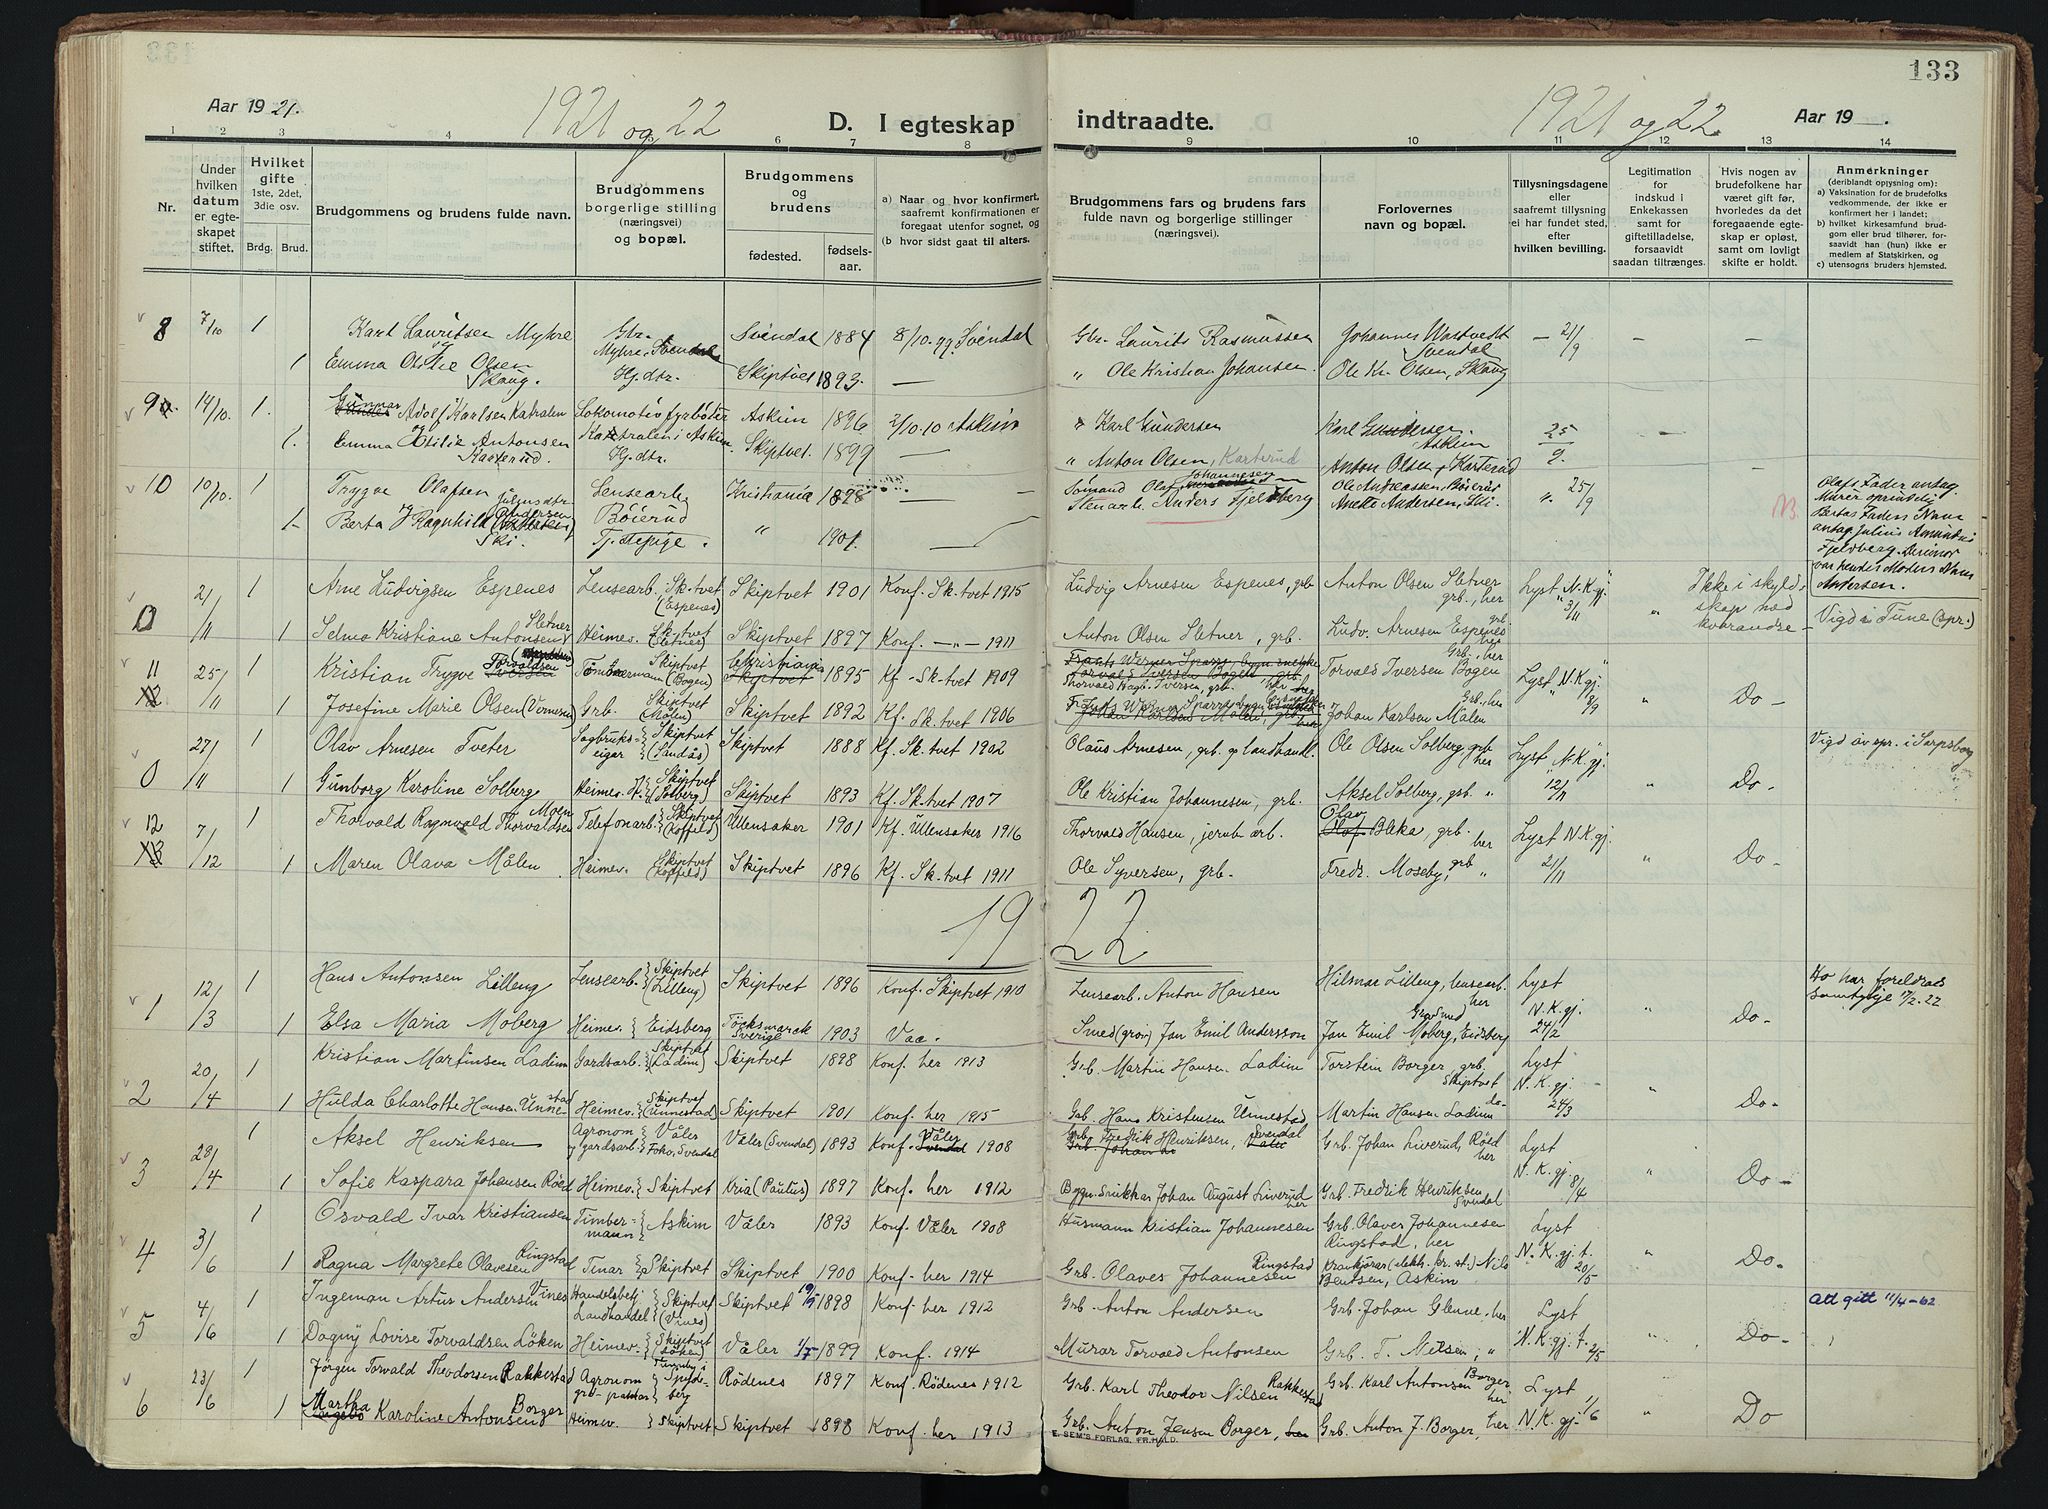 133
Aar 1921.
1921 og 22
D. I egteskap
indtraadte.
1921 og 22.
Aar 19 — .
1 2 3 4 6 7 8 9 10 11 12 13 14
Nr.
Under hvilken datum er egteskapet stiftet.
Hvilket gifte 1ste, 2det, 3die osv.
Brdg. Brud.
Brudgommens og brudens fulde navn.
Brudgommens borgerlige stilling (næringsvei) og bopæl.
Brudgommens og brudens
fødested.
fødselsaar.
a) Naar og hvor konfirmert, saafremt konfirmationen er foregaat utenfor sognet, og
(b hvor sidst gaat til alters.
Brudgommens fars og brudens fars fulde navn og borgerlige stillinger (næringsvei).
Forlovernes navn og bopæl.
Tillysningsdagene eller saafremt tillysning ei har fundet sted, efter hvilken bevilling.
Legitimation for indskud i Enkekassen samt for giftetilladelse, forsaavidt saadan tiltrænges.
Hvis nogen av brudefolkene har været gift før, hvorledes da det foregaaende egteskap er opløst, samt om lovligt skifte er holdt.
Anmerkninger
(deriblandt opjysning om):
a) Vaksination for de brudefolks vedkommende, der ikke er konfirmert her i landet;
b) hvilket kirkesamfund brudgom eller brud tilhører, forsaavidt han (hun) ikke er medlem av Statskirken, og
c) utensogns bruders hjemsted.
8 7/10 1 Karl Lauritsen Myhre Gbr. Myhre, Svendal Svendal 1884 8/10.99. Svendal Gbr. Laurits Rasmussen Johannes Wastvedt Svendal — 21/9 — —
1 Emma Otilie Olsen Skaug. Hj.dtr. Skiptvet 1893. — " Ole Kristian Johansen Ole Kr. Olsen, Skaug
9 14/10. 1. Gunnar Adolf Karlsen Katralen Lokomotivfyrbøter Katralen i Askim Askim 1896 2/10.10 Askim " Karl Gundersen Karl Gundersen. Askim 25/9. —
1. Emma Otilie Antonsen Karterud. Hj.dtr. Skiptvet. 1899 — " Anton Olsen, Karterud Anton Olsen, Karterud
10 10/10. 1 Trygve Olafsen Lensearb. Bøierud Kristiania 1898 — Sømand Olaf Johannesen Ole Andreassen, Bøierud " 25/9 —
1 Berta Ragnhild Juliusdtr. Andersen Ski. Tj.stepige. " 1901. — Stenarb. Anders Fjeldberg Anette Andersen, Ski. NB.
Olafs Fader antag. Murer oprindelig
Bertas Faders Navn antag. Julius Amundsen Fjeldberg.
var hendes Moders Navn Andersen.
0 21/11 1 Arne Ludvigsen Espenes Lensearb. Sk.tvet (Espenes) Skiptvet 1901 Konf. Sk.tvet 1915 Ludvig Arnesen Espenes, grb. Anton Olsen Sletner grb., her Lyst N.K.gj. 3/11 " Ikke i skyldskap med hverandre — Vigd i Tune (spr.)
1 Selma Kristiane Antonsen Sletner Heimev. Sk.tvet (Sletner) Skiptvet 1897 Konf. —"— 1911 Anton Olsen Sletner, grb. Ludv. Arnesen Espenes grb. her
11 25/11 1 Kristian Trygve Torvaldsen Tømmermann Skiptvet (Bogen) Christiania 1895 Kf. Sk.tvet 1909 Thorvald Iversen, grb. her Torvald Iversen Bogen Grb., her Lyst N.K.gj. 8/9 " Do —
1 Josefine Marie Olsen Grb. Skiptvet (Målen) Skiptvet 1892 Kf. Sk.tvet 1906 Johan Karlsen Målen Grb., her
0 27/11 1 Olav Arnesen Tveter Sagbrukseigar Skiptvet (Sandås) Skiptvet 1888 Kf. Sk.tvet 1902 Olaus Arnesen, grb. og landhandl. Ole Olsen Solberg, grb. her Lyst N.K.gj. 12/11 " Do — Vigd av spr. i Sarpsborg
1 Gunborg Karoline Solberg Heimev. Skiptvet (Solberg) Skiptvet 1893 Kf. Sk.tvet 1907 Ole Kristian Johannesen, grb. Aksel Solberg, grb. "
12 7/12 1 Thorvald Ragnvald Thorvaldsen Moen Telefonarb. Skiptvet (Koffeld) Ullensaker 1901 Kf. Ullensaker 1916 Thorvald Hansen, jernb.arb. Olav Bleka, grb. her Lyst N.K.gj. 21/11 " Do —
1 Maren Olava Målen Heimev. Skiptvet (Koffeld) Skiptvet 1896 Kf. Sk.tvet 1911 Ole Syversen, grb. Fredr. Moseby, grb. "
19 22
1 12/3 1 Hans Antonsen Lilleng Lensearb. Skiptvet (Lilleng) Skiptvet 1896 Konf. Skiptvet 1910 Lensearb. Anton Hansen Hilmar Lilleng, lensearb. her Lyst N.K.gj. 24/2 " Do — Ho har foreldrads samtykje 17/2.22
1 Elsa Maria Moberg Heimev. Eidsberg Töcksmarck Sverige 1903 Vac. Smed (grov) Jan Emil Andersson Jan Emil Moberg, Eidsberg
2 20/4 1 Kristian Martinsen Ladim Gardsarb. Skiptvet (Ladim) Skiptvet 1898 Konf. her 1913 Grb. Martin Hansen Ladim Torstein Borger, grb. Skiptvet Lyst N.K.gj. 24/3 " Do —
1 Hulda Charlotte Hansen Unnestad Heimev. Skiptvet (Unnestad) Skiptvet 1901 Konf. her 1915 Grb. Hans Kristensen Unnestad Martin Hansen Ladim do —
3 28/4 1 Aksel Henriksen Agronom og gardsarb. Våler Svendal Våler (Svendal) 1893 Konf. Våler 1908 Grb. Fredrik Henriksen, Svendal Grb. Johan Liverud, Røed her Lyst N.K.gj. 8/4 " Do —
1 Sofie Kaspara Johansen Røed Heimev. Skiptvet Kria (Paulus) 1897 Konf. her 1912 Bygn.snikkar Johan August Liverud her Grb. Fredrik Henriksen Svendal
4 3/6 1 Osvald Ivar Kristiansen Timbermann Askim Våler 1893 Konf. Våler 1908 Husmann Kristian Johannesen Grb. Olaves Johannesen Ringstad, her Lyst N.K.gj. f. 20/5 " Do —
1 Ragna Margrete Olavesen Ringstad Tenar Skiptvet Skiptvet 1900 Konf. her 1914 Grb. Olaves Johannesen Ringstad Krankjører (elektr. kr. st.) Nils Bentsen, Askim
5 4/6 1 Ingeman Artur Andersen Vines Handelsbetj. Landhandel Skiptvet (Vines) Skiptvet 19/9 1898 Konf. her 1912 Grb. Anton Andersen Grb. Johan Glenne, her Lyst N.K.gj. f. 2/5 " Do — Att gift 11/4-62
1 Dagny Lovise Torvaldsen Løken Heimev. Skiptvet (Løken) Våler 1/7 1899 Konf. 1914 Murar Torvald Antonsen Grb. T. Nilsen, "
6 23/6 1 Jørgen Torvald Theodorsen Rakkestad Agronom Spydeberg Rødenes 1897 Konf. Rødenes 1912 Grb. Karl Theodor Nilsen Rakkestad Grb. Karl Antonsen Borger her Lyst N.K.gj. 1/6 " Do
1 Martha Karoline Antonsen Borger Heimev. Skiptvet Skiptvet 1898 Konf. her 1913 Grb. Anton Jensen Borger, her Grb. Anton J. Borger, her
E. SEM'S FORLAG, FR.HALD.